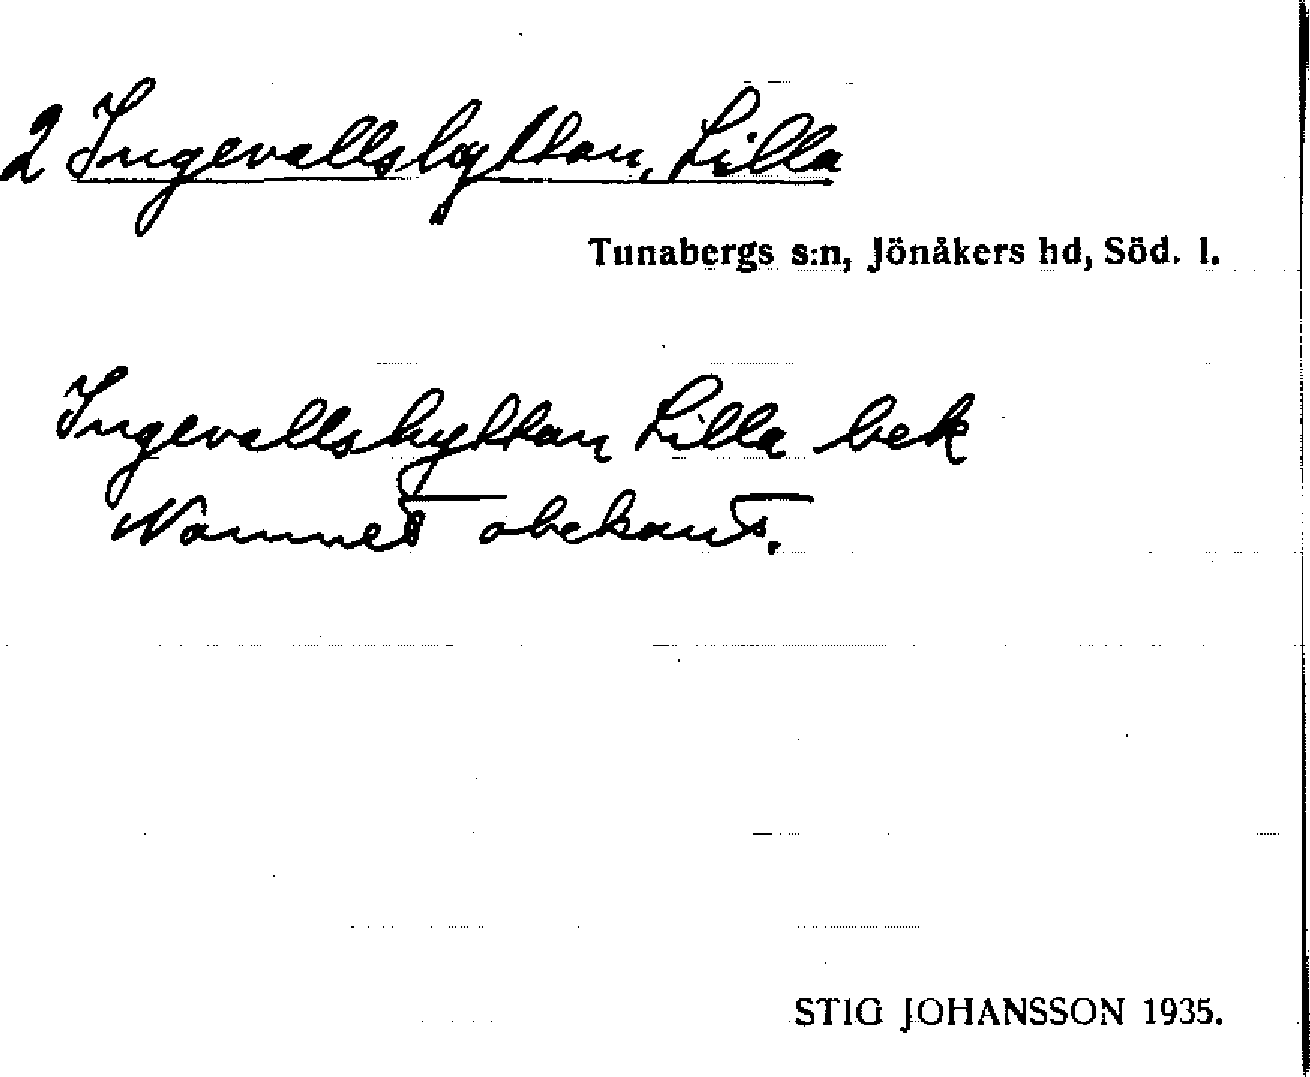 2 Ingevallshyttan, Lilla
Tunabergs s:n, Jönåkers hd, Söd. l.
Ingevallshyttan Lilla bek
Namnet obekant.
STIG JOHANSSON 1935.